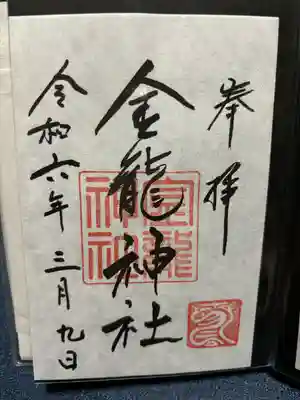 奉拝
金龍神社
金龍神社
令和六年三月九日